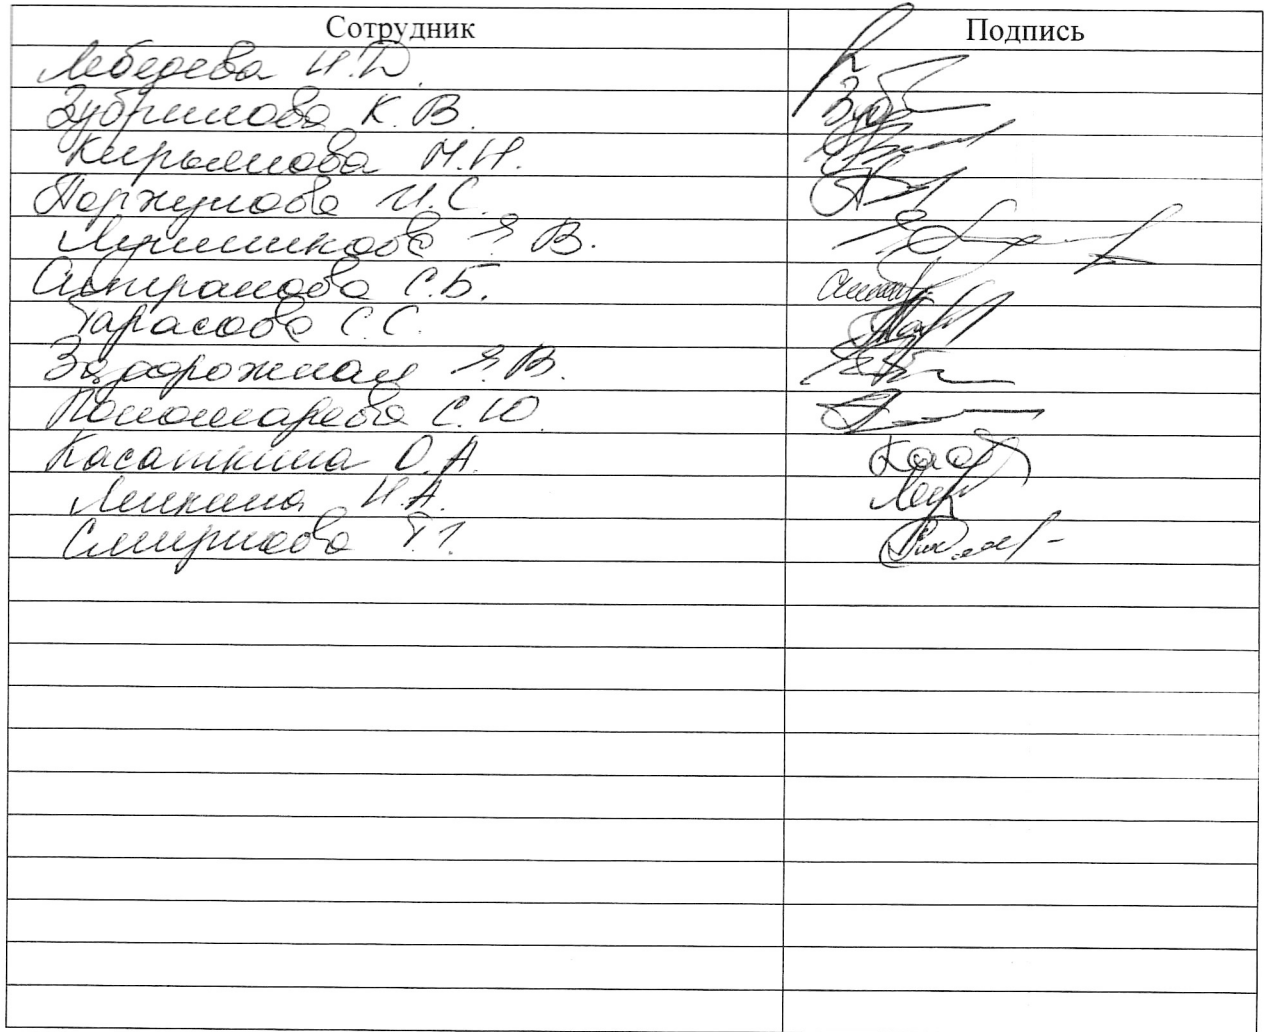 Сотрудник Подпись
Лебедева И.Д.
Зубрилова К.В. Зуб
Кирьянова М.И.
Поржунова И.С.
Лушникова Я.В.
Аспранова С.Б.
Тарасова С.С.
Задорожная Я.В.
Пономарева С.Ю.
Касаткина О.А. Кас
Ликина И.А.
Смирнова Т.Г.